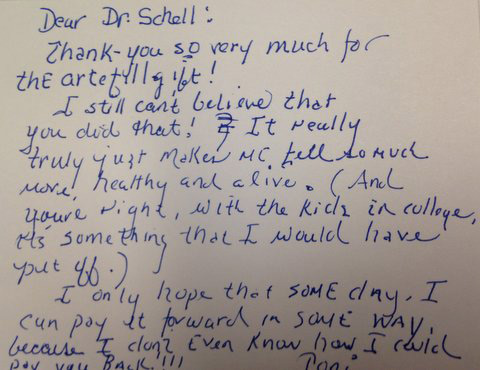 Dear Dr. Schell:
Thank-you so very much for
the artefill gift!
I still can't believe that
you did that! It really
truly just makes me feel so much
more, healthy and alive. (And
you're right, with the kids in college,
it's something that I would have
put off.)
I only hope that SOME day, I
can pay it forward in some way,
because I don't Even Know how I could
pay you BACK!!!